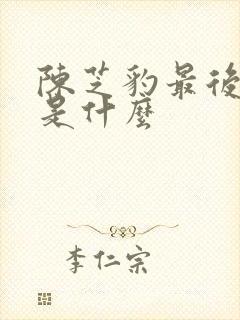 陳芝豹最後
是什麼
李仁宗